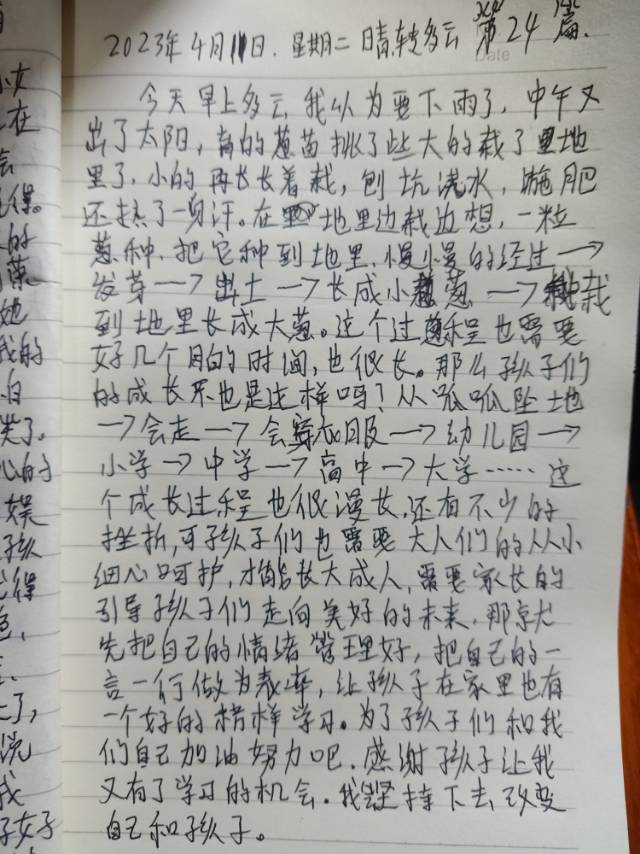 2023年4月11日.星期二 晴转多云 第24篇.
Date
今天早上多云,我以为要下雨了,中午又
出了太阳,育的葱苗挑了些大的栽了里地
里了,小的再长长着栽,刨坑浇水,施肥
还热了一身汗。在地里边栽边想,一粒
葱种,把它种到地里,慢慢的经过→
发芽→出土→长成小葱→栽
到地里长成大葱。这个过程也需要
好几个月的时间,也很长。那么孩子们
的成长不也是这样吗?从呱呱坠地
→会走→会穿衣服→幼儿园→
小学→中学→高中→大学……这
个成长过程也很漫长,还有不少的
挫折,可孩子们也需要大人们的从小
细心呵护,才能长大成人,需要家长的
引导孩子们走向美好的未来,那就
先把自己的情绪管理好,把自己的一
言一行做为表率,让孩子在家里也有
一个好的榜样学习。为了孩子们和我
们自己加油努力吧.感谢孩子让我
又有了学习的机会.我坚持下去,改变
自己和孩子。
小女
在
会
的
菜
她
我的
白
笑了.
心的
娱
孩
得
色,
了,
说
我
子女子